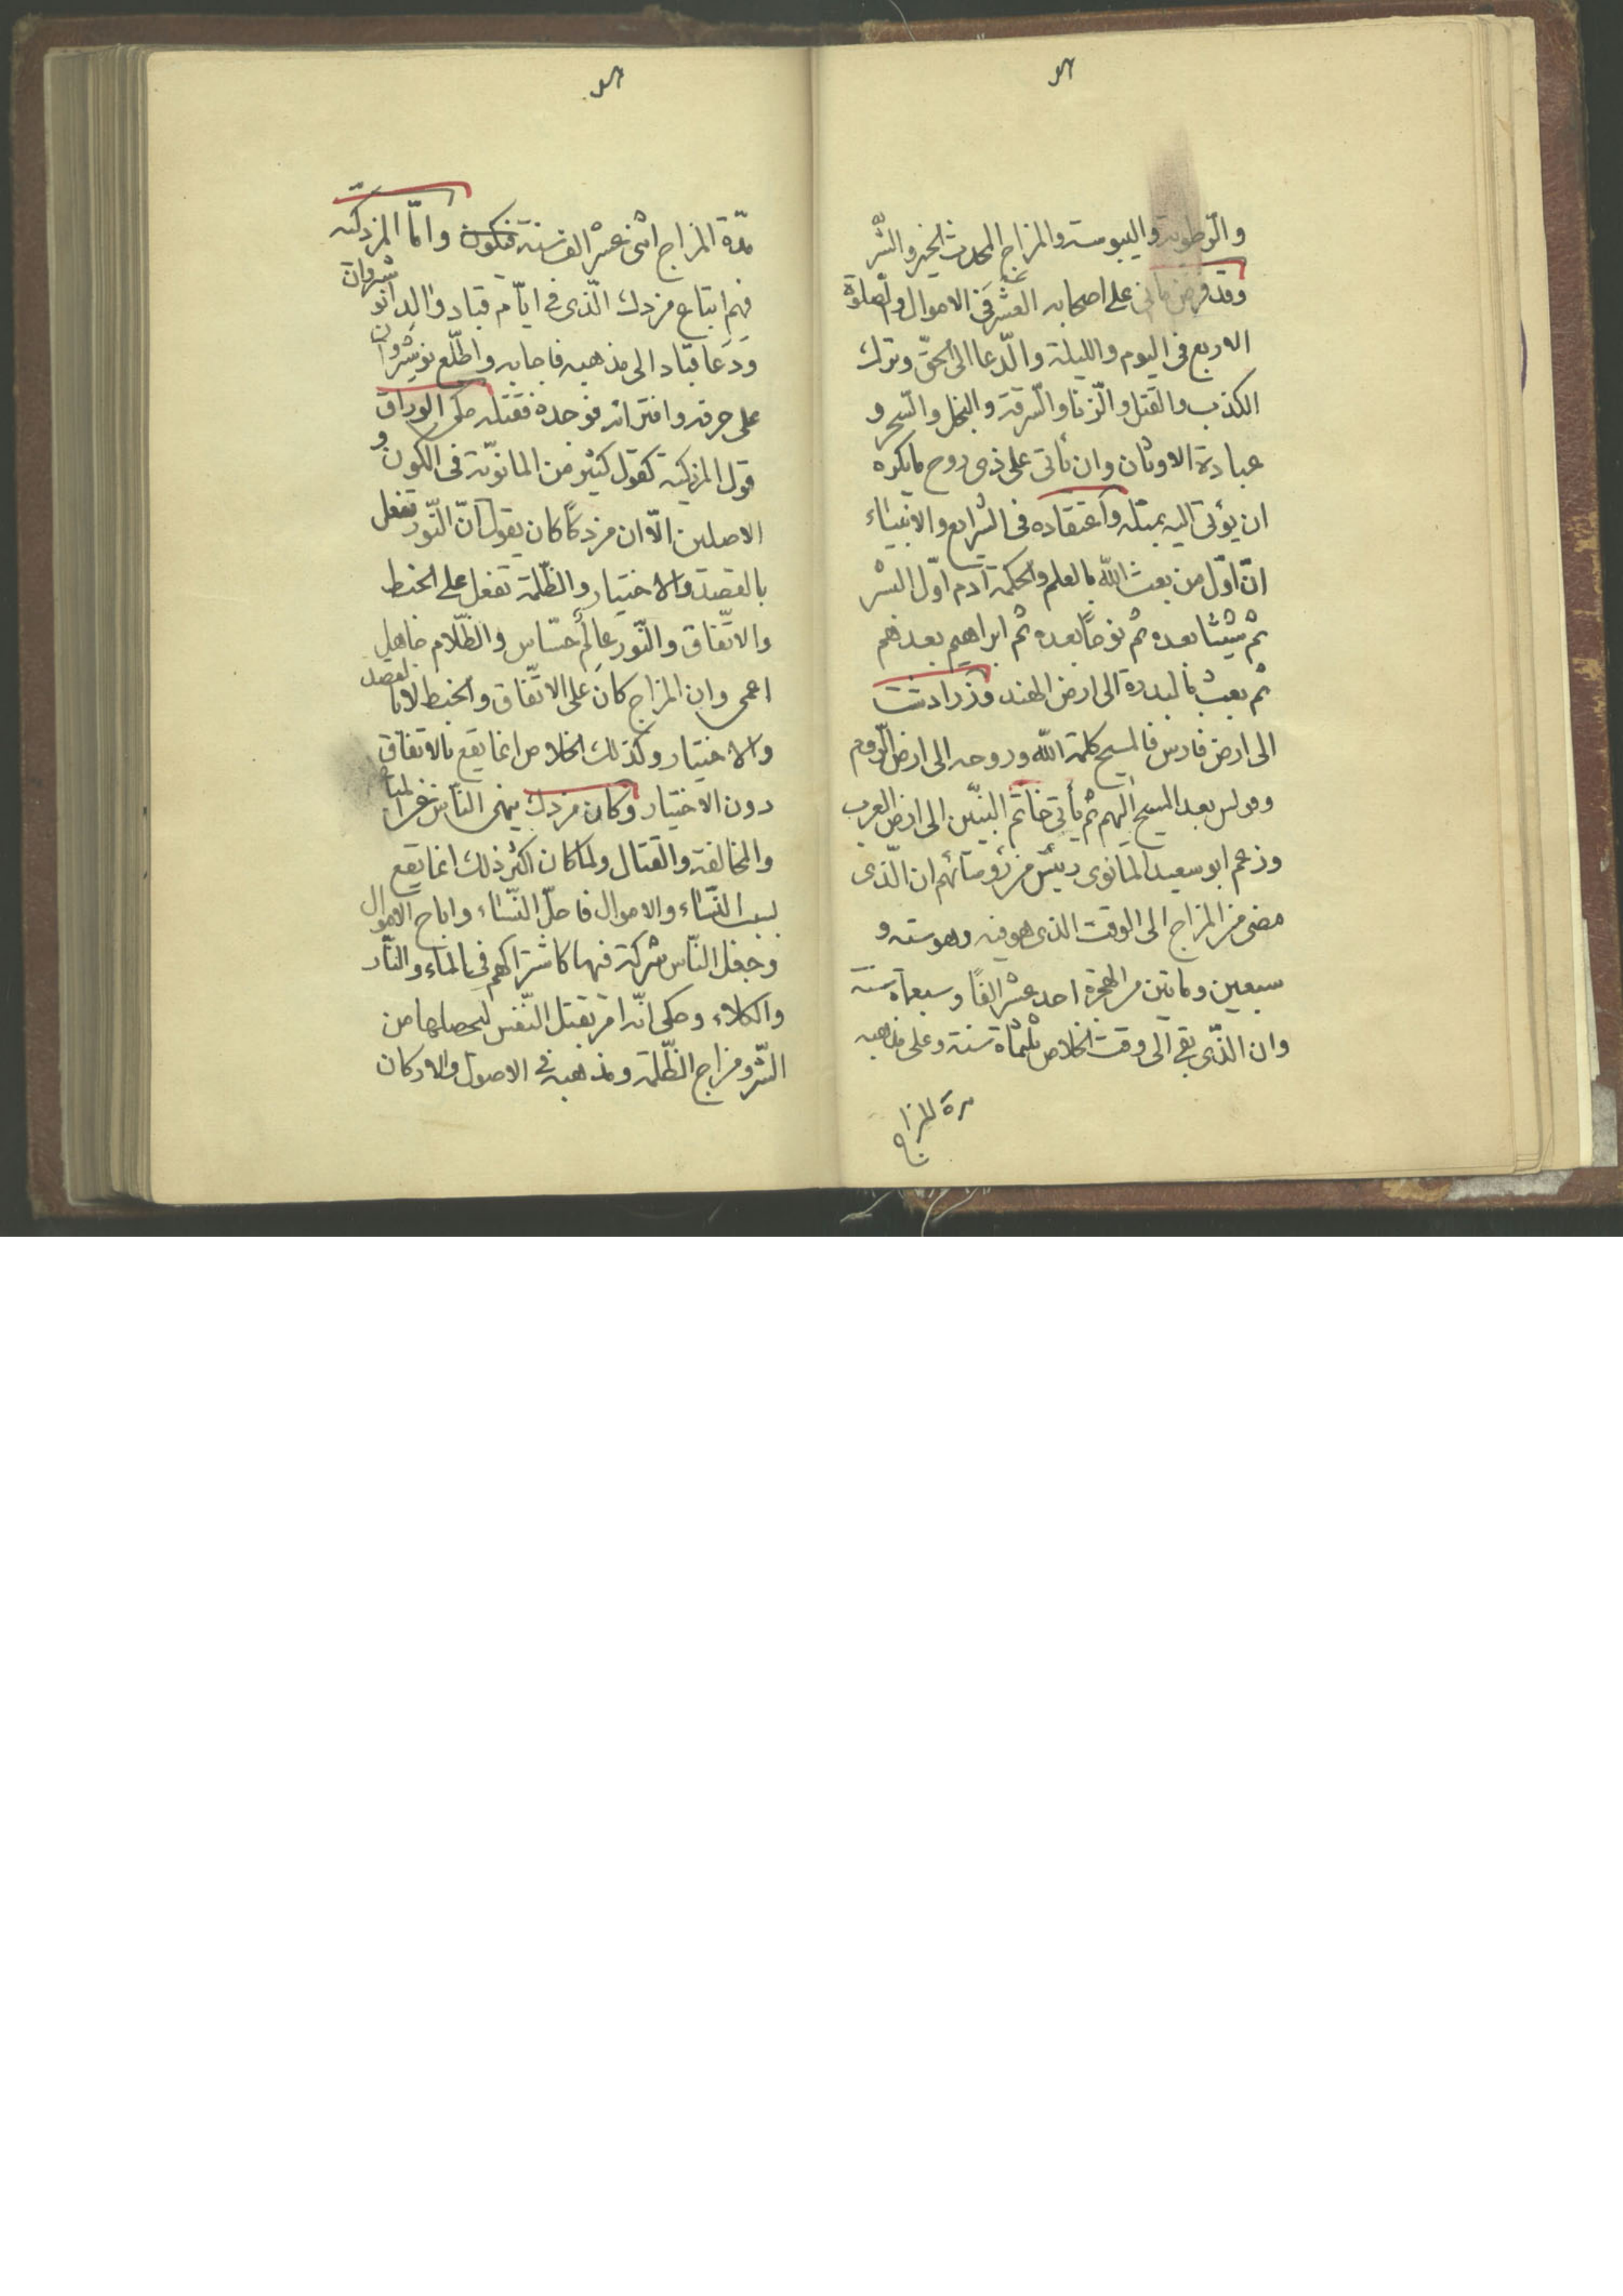 والرّطوبة واليبوسة والمزاج المحدث الخير والشّر
وقد فرض مانى على اصحابه العشر فى الاموال والصلوة
الاربع فى اليوم والليلة والدّعا الى الحقّ وترك
الكذب والقتل والزّنا والسّرقة والبخل والسّحر و
عبادة الاوثان وان يأتى على ذى روح مايكره
ان يؤتى اليه بمثله واعتقاده فى الشرايع والانبياء
انّ اوّل من بعث اللّه بالعلم والحكمة آدم اوّل البشر
ثم شيثا بعده ثم نوحاً بعده ثم ابراهيم بعدهم
ثم بعث بالبددة الى ارض الهند وزرادشت
الى ارض فارس فالمسيح كلمة اللّه وروحه الى ارض الرّوم
وفولس بعد المسيح اليهم ثم يأتى خاتم النبيّين الى ارض العرب
وزعم ابو سعيد المانوى رئيس من رؤسائهم ان الّذى
مضى من المزاج الى الوقت الذى هو فيه وهو سنة و
سبعين ومأتين من الهجرة احد عشر الفاً وسبعمأة سنة
وان الّذى بقى الى وقت الخلاص ثلثمأة سنة وعلى مذهبه
مدة المزاج
مدّة المزاج اثنى عشر الف سنة فيكون وامّا المزدكيّة
فهم اتباع مزدك الّذى فى ايّام قباد والد انوشروان
ودعا قباد الى مذهبه فاجابه واطّلع نوشروان
على خرقه وافترائه فوجده فقتله حكى الوراق
قول المزدكية كقول كثير من المانويّة فى الكون و
الاصلين الّا ان مزدكاً كان يقول انّ النّور تفعل
بالقصد والاختيار والظّلمة تفعل على الخبط
والاتّفاق والنّور عالم حسّاس والظّلام جاهل
اعمى وان المزاج كان على الاتّفاق والخبط لا بالقصد
والاختيار وكذلك الخلاص انما يقع بالاتفاق
دون الاختيار وكان مزدك ينهى النّاس عن المباغضة
والمخالفة والقتال ولما كان اكثر ذلك انما يقع
بسبب النّساء والاموال فاحلّ النّساء واباح الاموال
وجعل النّاس شركة فيها كاشتراكهم فى الماء والنّار
والكلاء وحكى انّه امر بقتل النّفس ليحصلها من
الشّر ومزاج الظّلمة ومذهبه فى الاصول والاركان